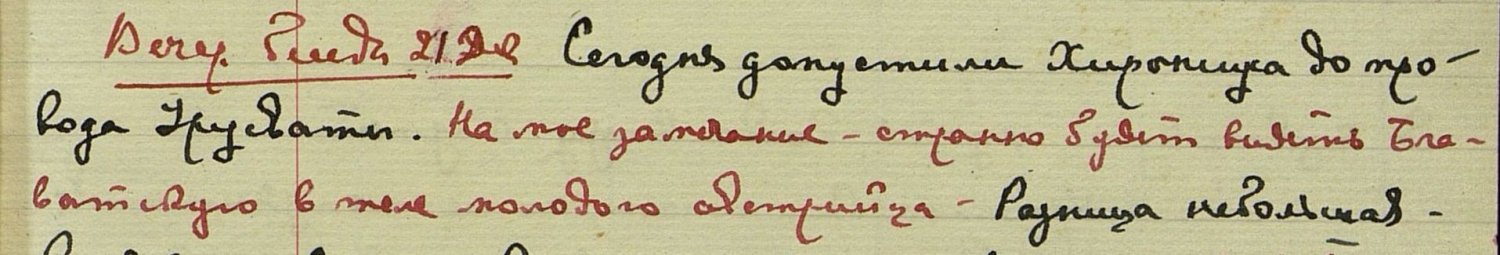 Вечер. беседа 21 Дек Сегодня допустили Хирурга до про-
вода Урусвати. На мое замечание - странно будет видеть Бла-
ватскую в теле молодого австрийца - Разница небольшая -